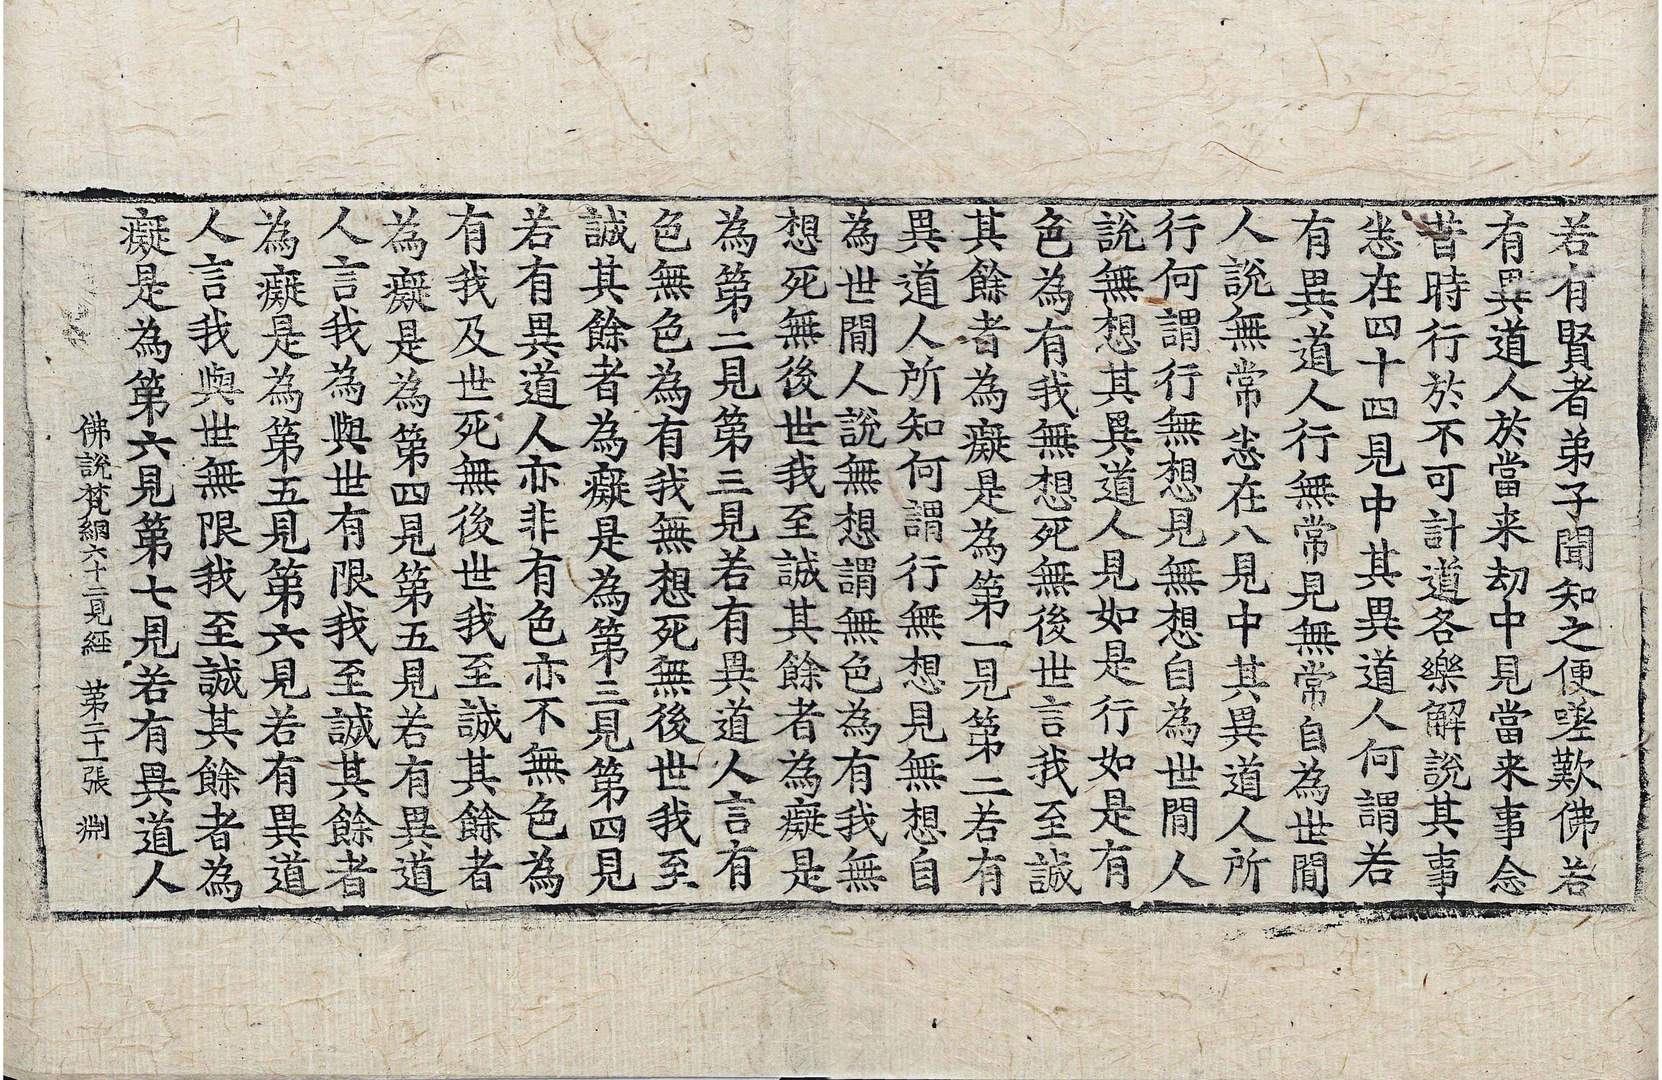 若有賢者弟子聞知之便嗟歎佛若
有異道人於當来劫中見當来事念
昔時行於不可計道各樂解說其事
悉在四十四見中其異道人何謂若
有異道人行無常見無常自為世間
人說無常悉在八見中其異道人所
行何謂行無想見無想自為世間人
說無想其異道人見如是行如是有
色為有我無想死無後世言我至誠
其餘者為癡是為第一見第二若有
異道人所知何謂行無想見無想自
為世間人說無想謂無色為有我無
想死無後世我至誠其餘者為癡是
為第二見第三見若有異道人言有
色無色為有我無想死無後世我至
誠其餘者為癡是為第三見第四見
若有異道人亦非有色亦不無色為
有我及世死無後世我至誠其餘者
為癡是為第四見第五見若有異道
人言我為與世有限我至誠其餘者
為癡是為第五見第六見若有異道
人言我與世無限我至誠其餘者為
癡是為第六見第七見若有異道人
佛說梵網六十二見經 第二十張 淵